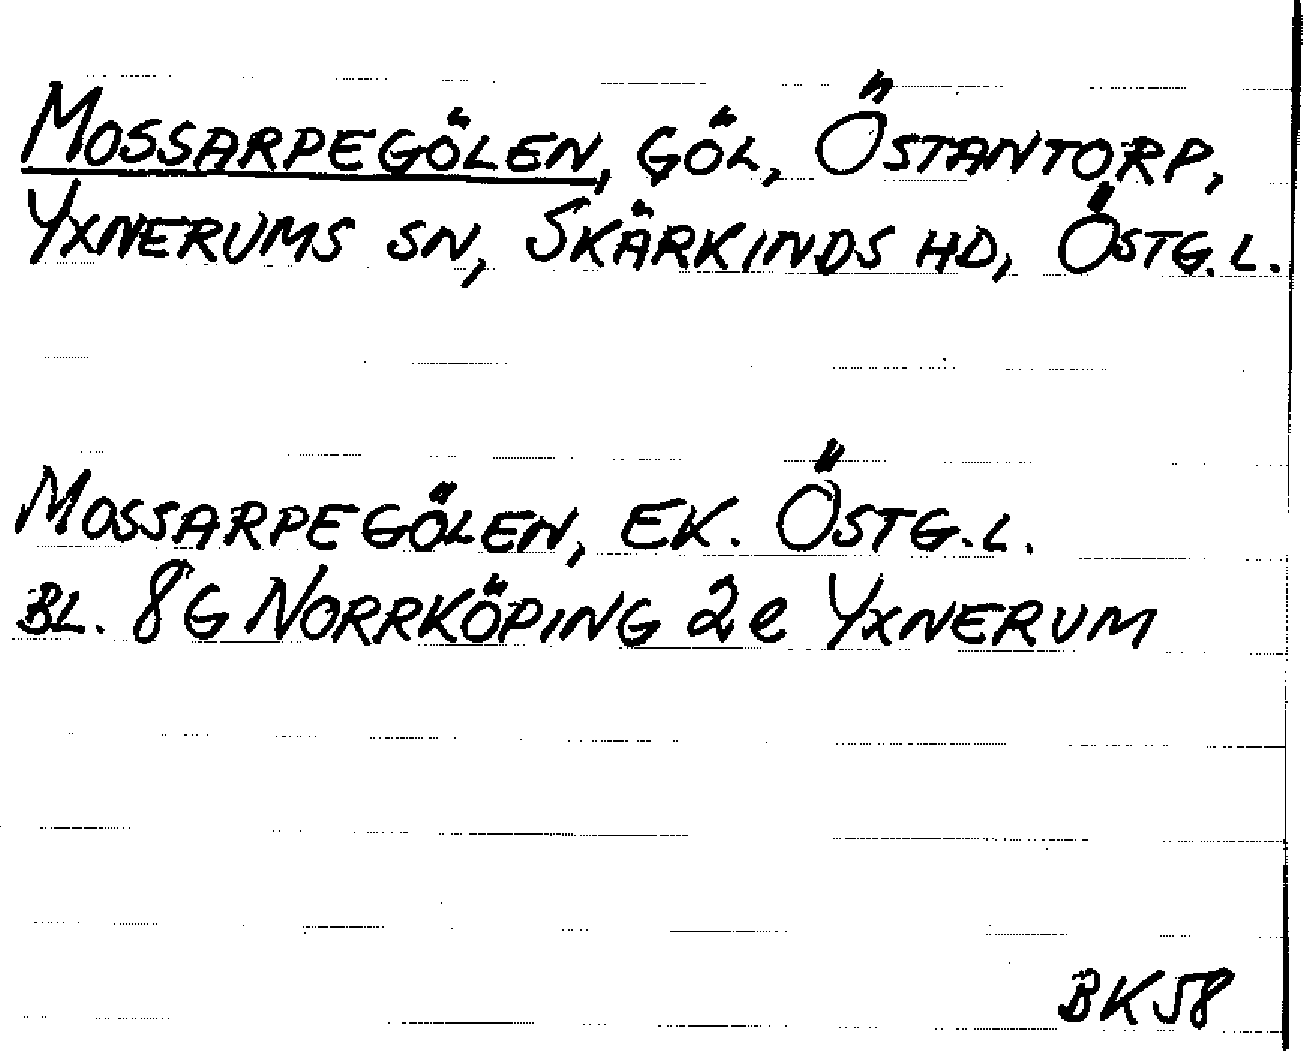 MOSSARPEGÖLEN, GÖL, ÖSTANTORP,
YXNERUMS SN, SKÄRKINDS HD, ÖSTG.L.
MOSSARPEGÖLEN, EK. ÖSTG.L.
BL. 8G NORRKÖPING 2e YXNERUM
BK58